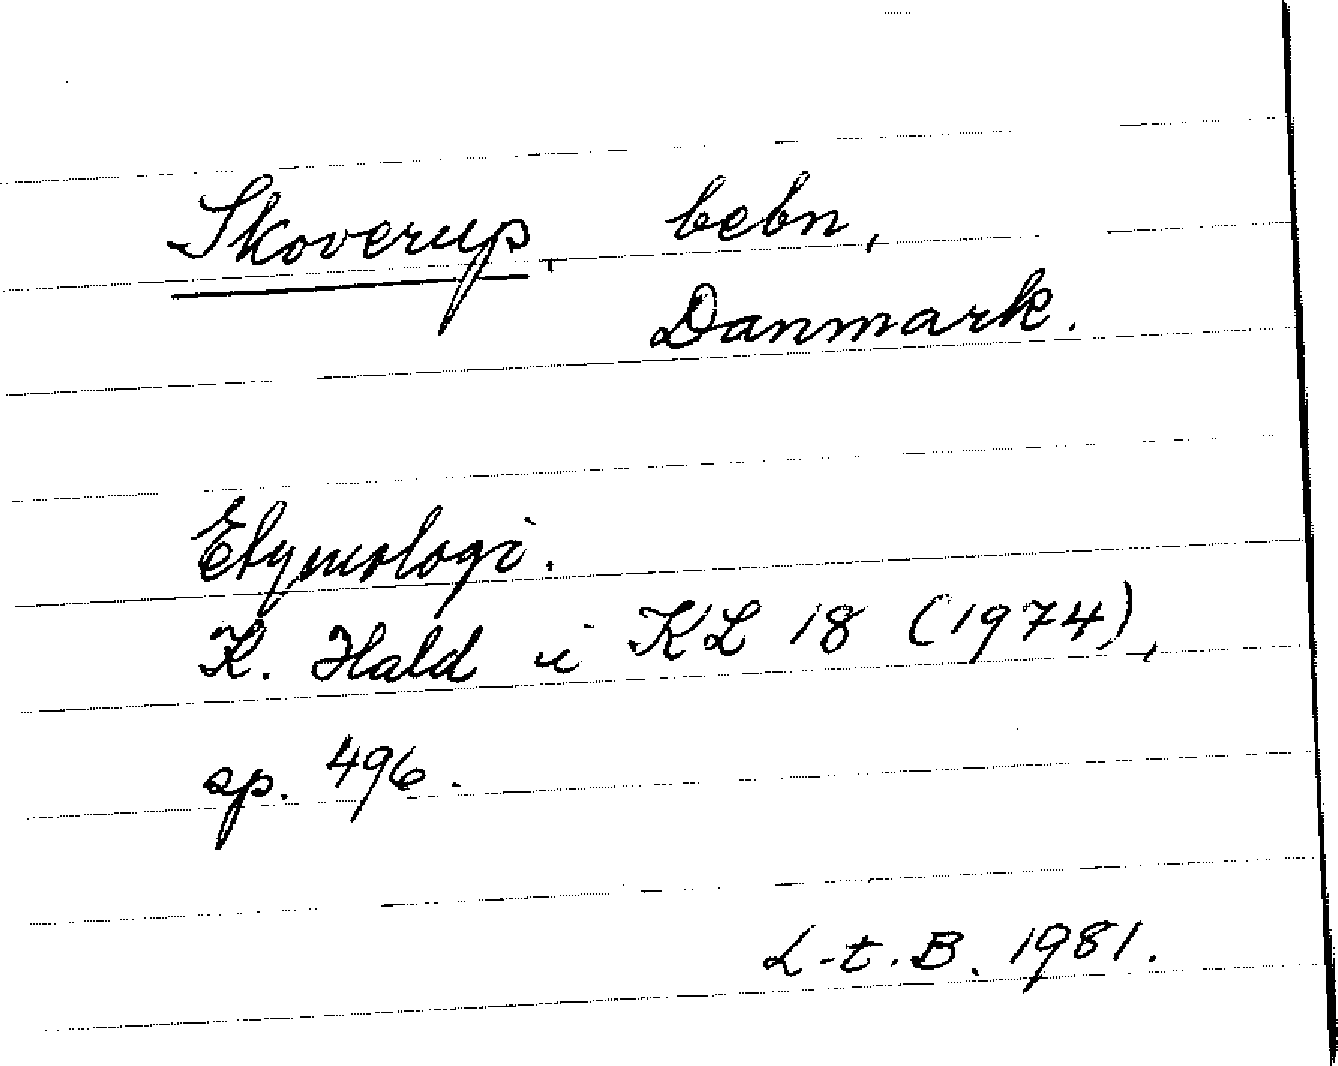 Skoverup, bebn,
Danmark.
Etymologi.
K. Hald i KL 18 (1974),
sp. 496.
L-t. B. 1981.